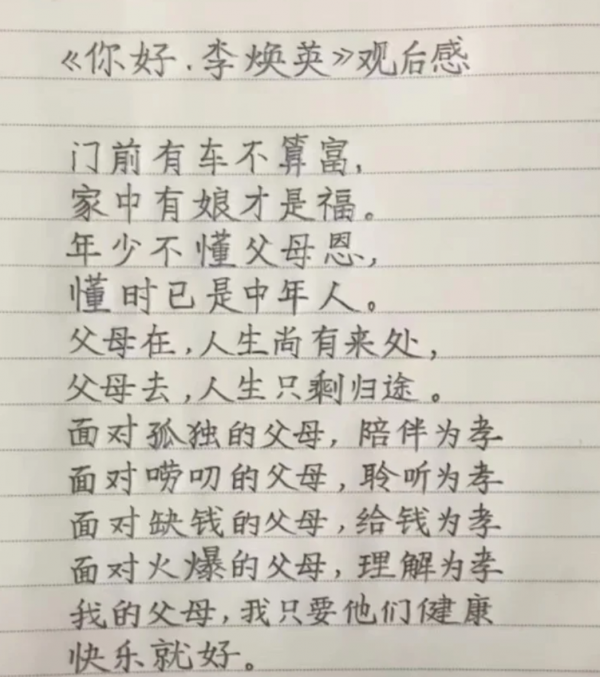 《你好.李焕英》观后感
门前有车不算富,
家中有娘才是福。
年少不懂父母恩,
懂时已是中年人。
父母在,人生尚有来处,
父母去,人生只剩归途。
面对孤独的父母,陪伴为孝
面对唠叨的父母,聆听为孝
面对缺钱的父母,给钱为孝
面对火爆的父母,理解为孝
我的父母,我只要他们健康
快乐就好。